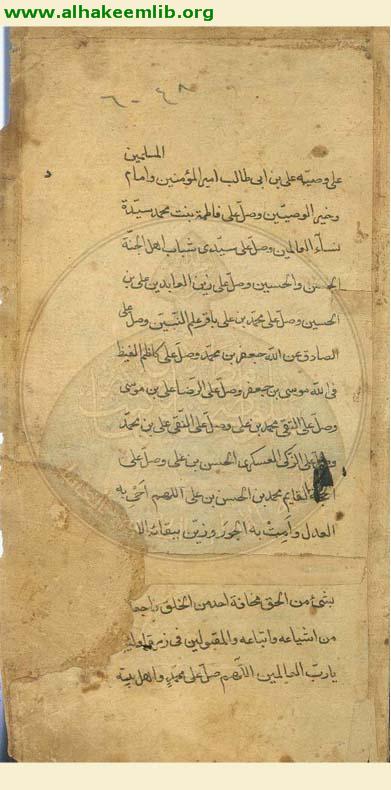 www.alhakeemlib.org
٦ - ٤٨
المسلمين
على وصيه على بن ابى طالب امير المؤمنين وامام
وخير الوصيين وصل على فاطمة بنت محمد سيدة
نساء العالمين وصل على سيدى شباب اهل الجنة
الحسن والحسين وصل على زين العابدين على بن
الحسين وصل على محمد بن على باقر علم النبيين وصل على
الصادق عن الله جعفر بن محمد وصل على كاظم الغيظ
فى الله موسى بن جعفر وصل على الرضا على بن موسى
وصل على التقى محمد بن على وصل على النقى على بن محمد
وصل على الزكى العسكرى الحسن بن على وصل على
الحجة القايم محمد بن الحسن بن على اللهم احى به
العدل وامت به الجور وزين ببقائه
بشئ من الحق مخافة احد من الخلق واجعلنا
من اشياعه واتباعه والمقبولين فى زمرة
يارب العالمين اللهم صل على محمد واهل بيته